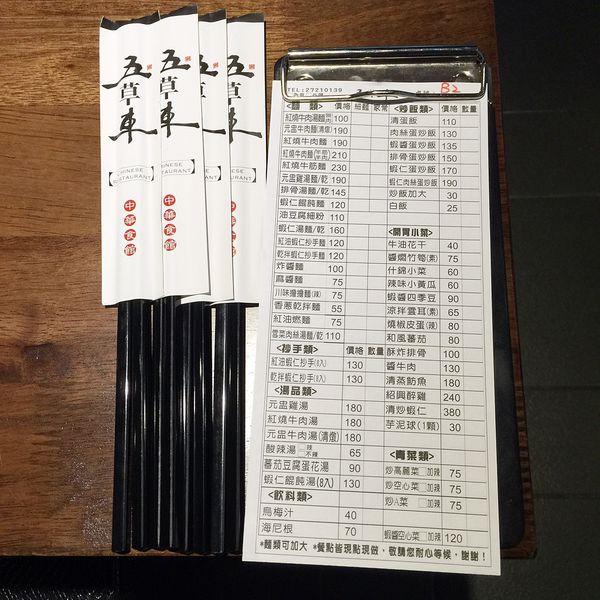 五草車
CHINESE
RESTAURANT
中華食館
五草車
CHINESE
RESTAURANT
中華食館
五草車
五草車
CHINESE
RESTAURANT
中華食館
TEL:27210139
B2
<麵 類> 價格 細麵 家常
紅燒牛肉湯麵 100
元盅牛肉麵(清燉) 190
紅燒牛肉麵 190
紅燒牛肉麵 210
紅燒牛筋麵 230
元盅雞湯麵/乾 190
排骨湯麵/乾 145
蝦仁餛飩麵 120
油豆腐細粉 110
蝦仁湯麵/乾 160
紅油蝦仁抄手麵 120
乾拌蝦仁抄手麵 120
炸醬麵 100
麻醬麵 75
川味擔擔麵(辣) 75
香蔥乾拌麵 55
紅油燃麵 75
雪菜肉絲湯麵/乾 110
<抄手類> 價格 數量
紅油蝦仁抄手(8入) 130
乾拌蝦仁抄手(8入) 130
<湯品類>
元盅雞湯 180
紅燒牛肉湯 180
元盅牛肉湯(清燉) 180
酸辣湯 辣 不辣 65
蕃茄豆腐蛋花湯 90
蝦仁餛飩湯(8入) 130
<飲料類>
烏梅汁 40
海尼根 70
<炒飯類> 價格 數量
清蛋飯 110
肉絲蛋炒飯 130
蝦醬蛋炒飯 135
排骨蛋炒飯 150
蝦仁蛋炒飯 170
蝦仁肉絲蛋炒飯 190
炒飯加大 30
白飯 25
<開胃小菜>
牛油花干 40
醬燜竹筍(素) 75
什錦小菜 60
辣味小黃瓜 60
蝦醬四季豆 90
涼拌雲耳(素) 65
燒椒皮蛋(辣) 80
和風蕃茄 80
酥炸排骨 100
醬牛肉 130
清蒸魴魚 180
紹興醉雞 240
清炒蝦仁 380
芋泥球(1顆) 30
<青菜類>
炒高麗菜 加辣 75
炒空心菜 加辣 75
炒A菜 加辣 75
蝦醬空心菜 加辣 120
*麵類可加大 *餐點皆現點現做，敬請您耐心等候，謝謝！